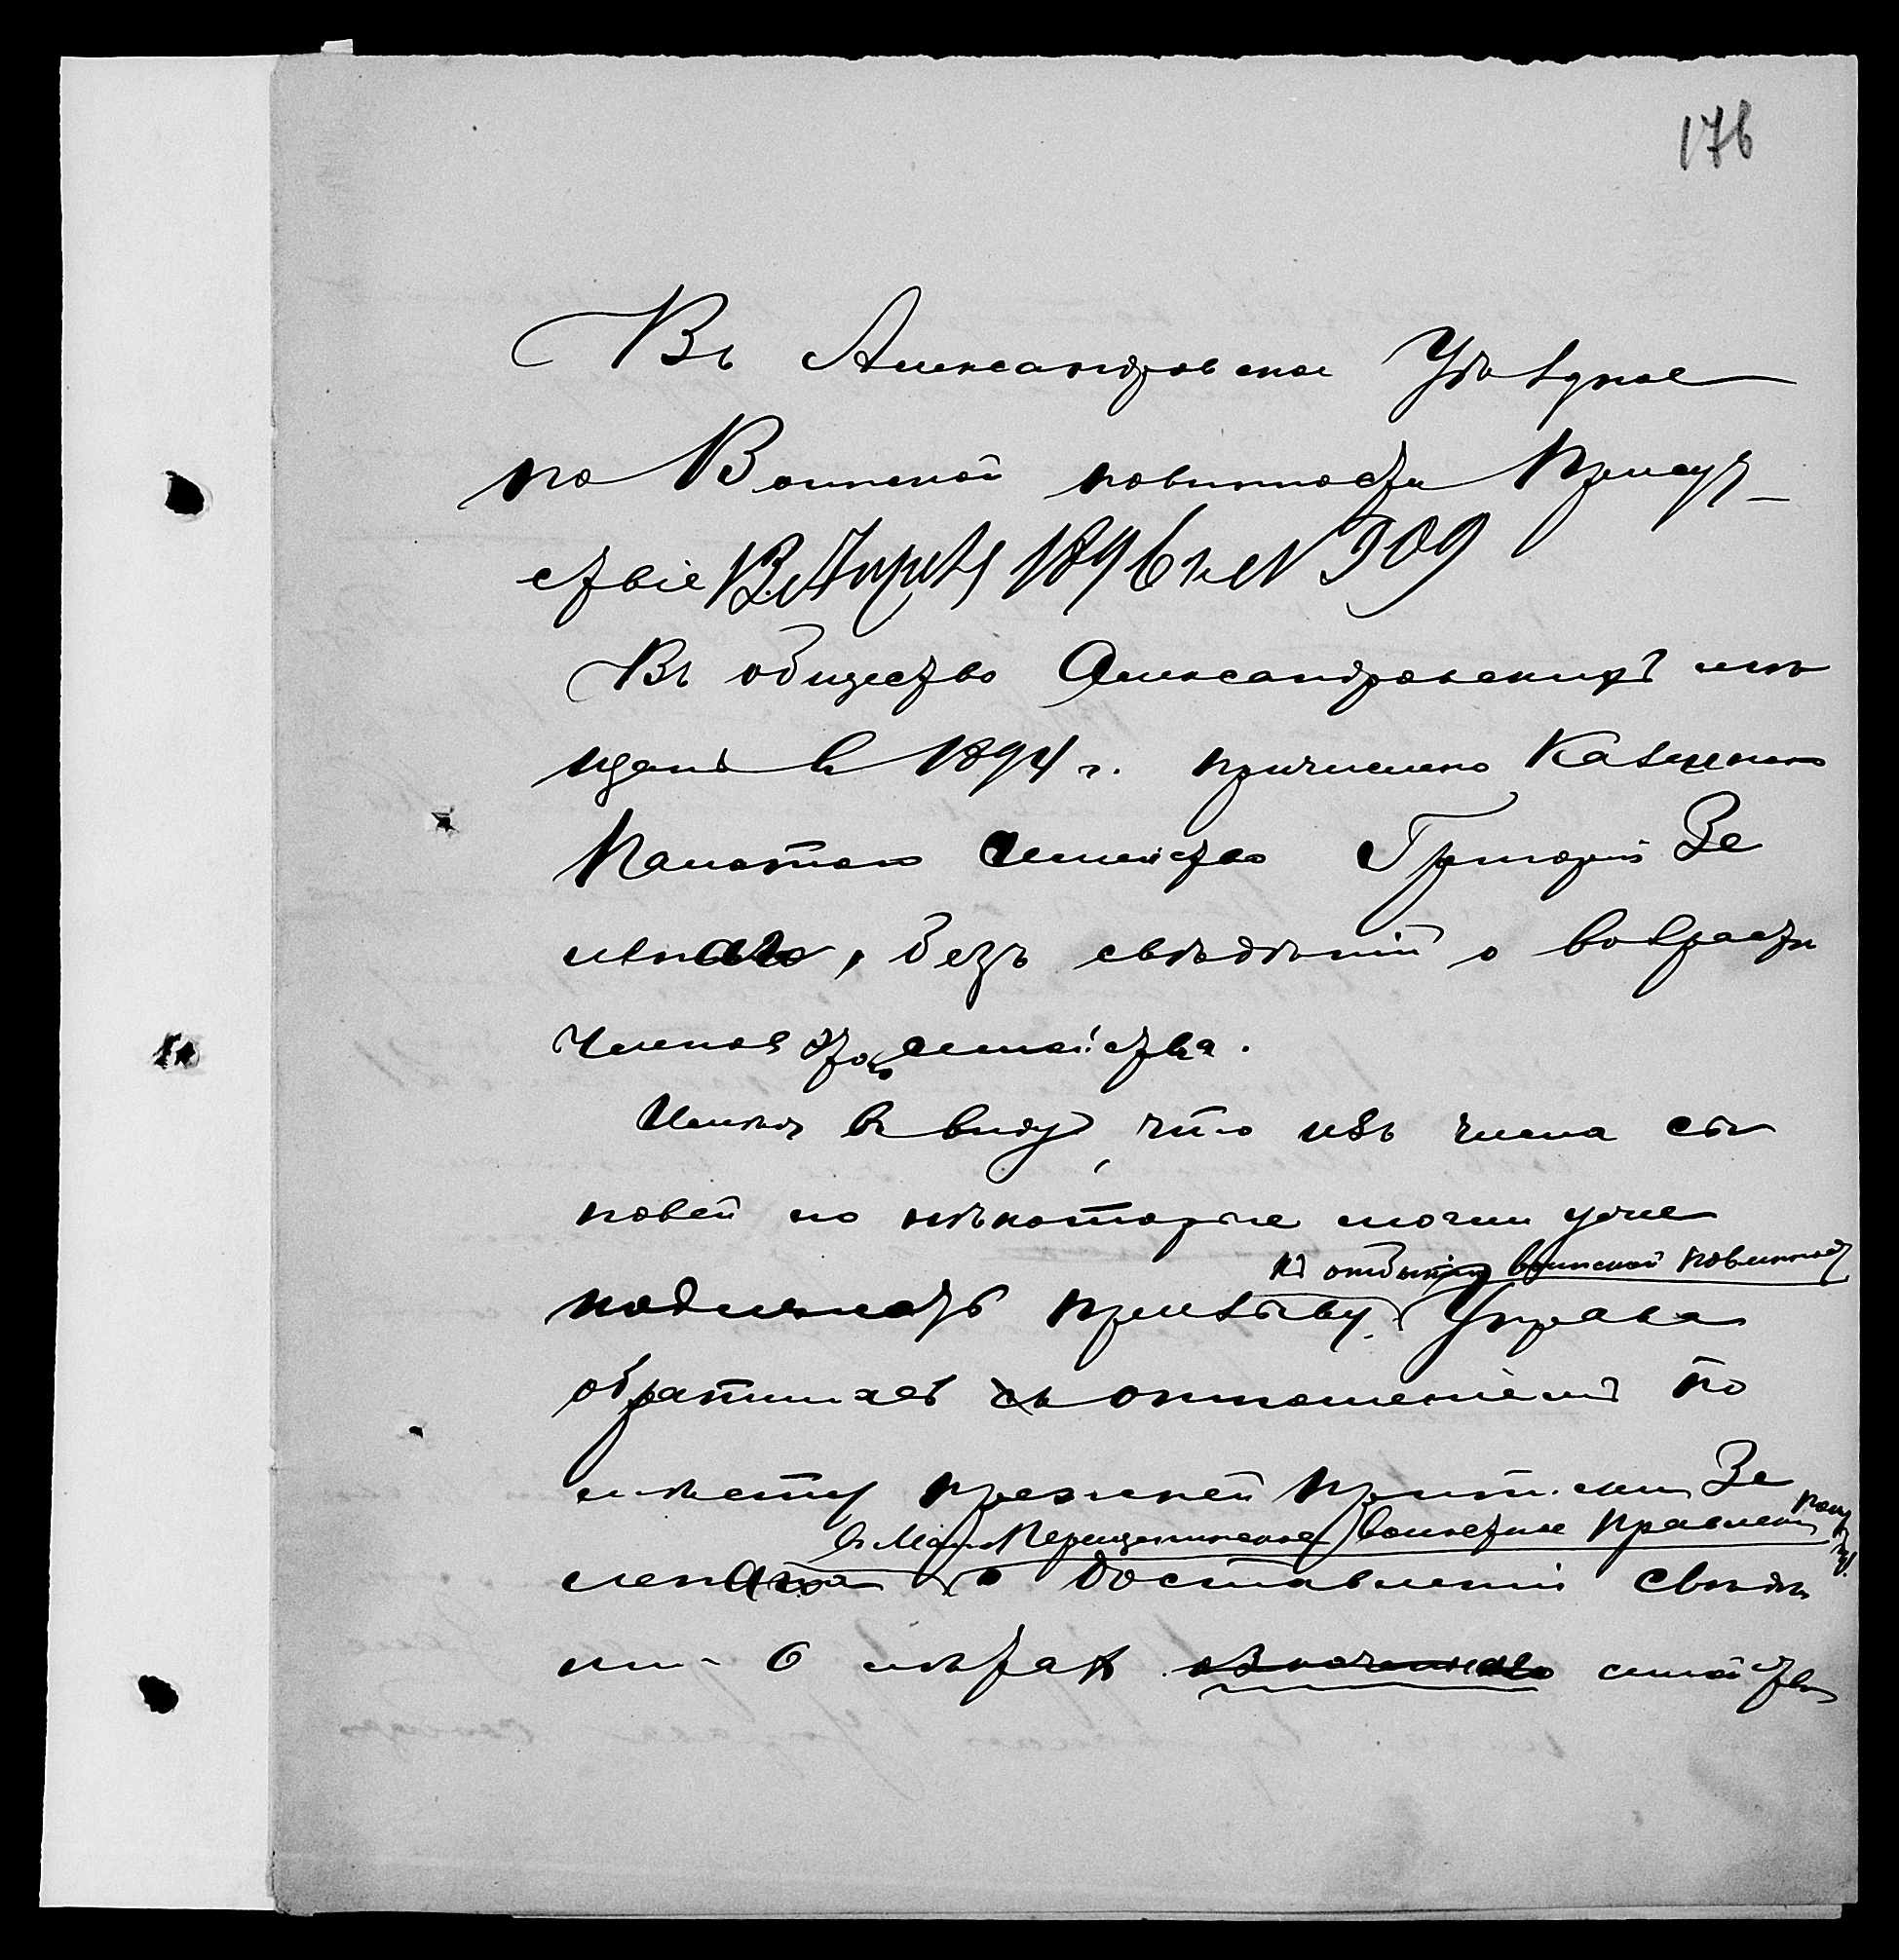 176
Въ Александровское Уѣздное
по Воинской повинности Присут-
ствіе 13 Апрѣля 1896 г. № 309
Въ общество Александровскихъ мѣ
щанъ в 1894 г. причислено Казенною
Палатою семейство Григорія Зе
, безъ свѣдѣній о возрастѣ
членов этого семейства.
Имѣя въ виду, что изъ числа сы
новей его нѣкоторые могли уже
къ отбытію воинской повинност
подлежать призыву, Управа
обратилась съ отношеніемъ по
мѣсту прежней приписки Зе
в Мало волостное Правленіе
о доставленіи свѣдѣ
ній о лѣтах семейства